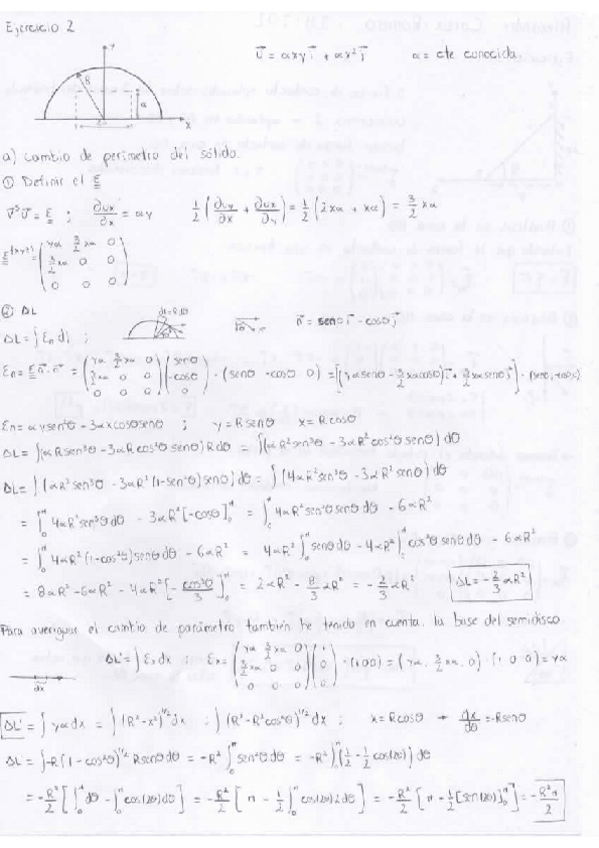 Ejercicio 2
y
R
a
x
U⃗ = αxy i⃗ + αx² j⃗    α = cte conocida.
a) cambio de perímetro del sólido.
① Definir el ε
∇ˢU⃗ = ε ; ∂ux/∂x = αy    1/2 (∂uy/∂x + ∂ux/∂y) = 1/2 (2xα + xα) = 3/2 xα
ε(x,y,z) = (yα 3/2 xα 0 / 3/2 xα 0 0 / 0 0 0)
② ΔL
dl = R dθ
ΔL = ∫ εn dl ;    n⃗ = senθ i⃗ - cosθ j⃗
εn = ε n⃗ · n⃗ = (yα 3/2 xα 0 / 3/2 xα 0 0 / 0 0 0) (senθ / -cosθ / 0) · (senθ -cosθ 0) = [(yαsenθ - 3/2 xαcosθ) i⃗ + 3/2 xαsenθ j⃗] · (senθ, -cosθ)
εn = αysen²θ - 3αxcosθsenθ ;    y = Rsenθ    x = Rcosθ
ΔL = ∫(αRsen³θ - 3αRcos²θ senθ) R dθ = ∫(αR²sen³θ - 3αR²cos²θ senθ) dθ
ΔL = ∫(αR²sen³θ - 3αR²(1-sen²θ)senθ) dθ = ∫(4αR²sen³θ - 3αR²senθ) dθ
= ∫₀^π 4αR²sen³θ dθ - 3αR²[-cosθ]₀^π = ∫₀^π 4αR²sen²θ senθ dθ - 6αR²
= ∫₀^π 4αR²(1-cos²θ)senθ dθ - 6αR² = 4αR² ∫₀^π senθ dθ - 4αR² ∫₀^π cos²θ senθ dθ - 6αR²
= 8αR² - 6αR² - 4αR² [-cos³θ/3]₀^π = 2αR² - 8/3 αR² = -2/3 αR²    ΔL = -2/3 αR²
Para averiguar el cambio de parámetro también he tenido en cuenta la base del semidisco
dx
ΔL' = ∫ εx dx ; εx = (yα 3/2 xα 0 / 3/2 xα 0 0 / 0 0 0) (1 / 0 / 0) · (1 0 0) = (yα, 3/2 xα, 0) · (1 0 0) = yα
ΔL' = ∫ yα dx = ∫ (R²-x²)^1/2 dx ; ∫ (R²-R²cos²θ)^1/2 dx ;    x = Rcosθ → dx/dθ = -Rsenθ
ΔL = ∫ -R(1-cos²θ)^1/2 Rsenθ dθ = -R² ∫₀^π sen²θ dθ = -R² ∫₀^π (1/2 - 1/2 cos(2θ)) dθ
= -R²/2 [∫₀^π dθ - ∫₀^π cos(2θ) dθ] = -R²/2 [π - 1/2 ∫₀^π cos(2θ) 2 dθ] = -R²/2 [π - 1/2 [sen(2θ)]₀^π] = -R²π/2